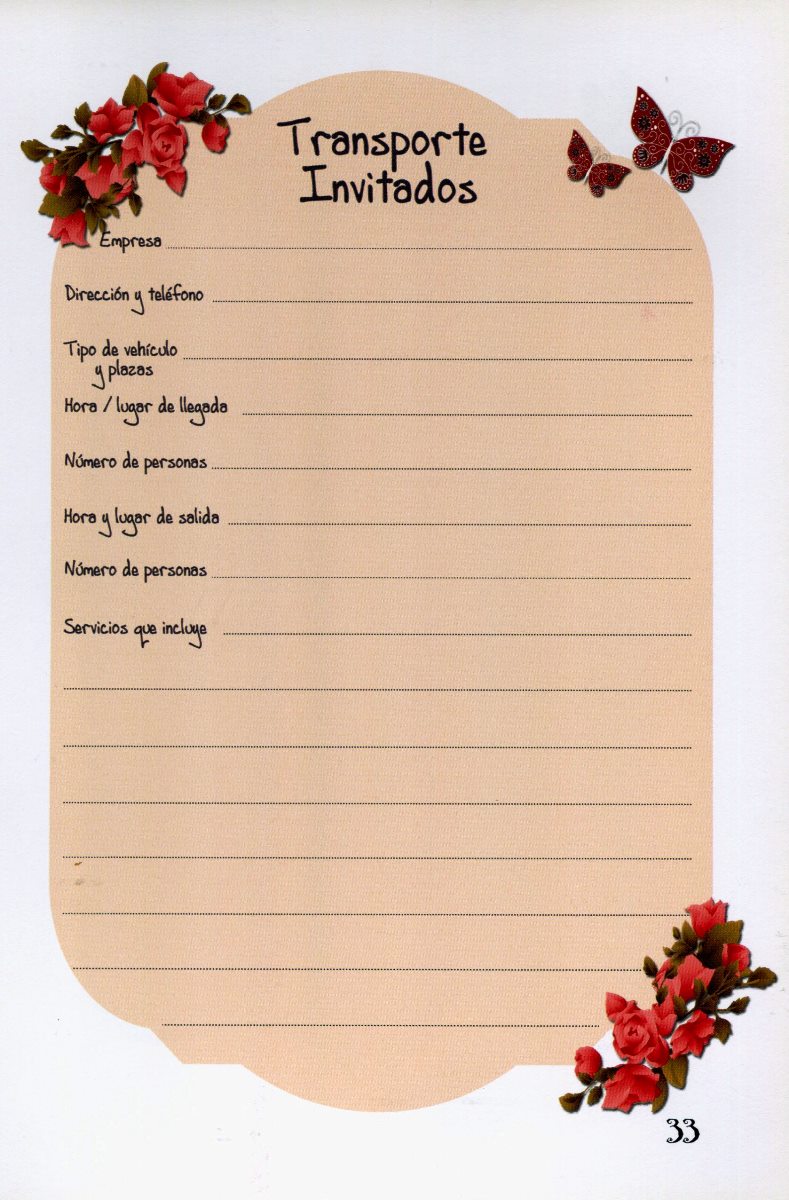 Transporte
Invitados
Empresa
Dirección y teléfono
Tipo de vehículo
y plazas
Hora / lugar de llegada
Número de personas
Hora y lugar de salida
Número de personas
Servicios que incluye
33